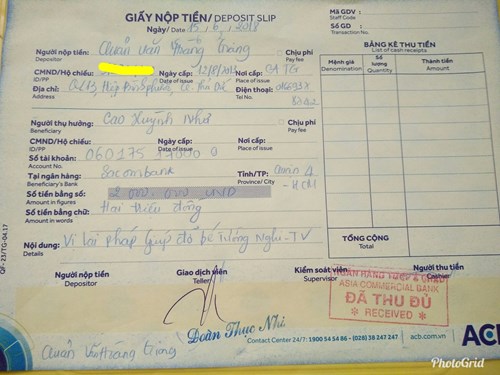 GIẤY NỘP TIỀN/ DEPOSIT SLIP
Ngày/ Date 15/6/2018
Mã GDV :
Staff Code
Số GD :
Transaction No.
Người nộp tiền: Quán Văn Tráng Chịu phí
Depositor Pay fee
CMND/Hộ chiếu: Ngày cấp: Nơi cấp: CA TG
ID/PP Date of issue Place of issue
Địa chỉ: Hiệp Bình Phước, Q. Thủ Đức Điện thoại:
Address Tel No.
Người thụ hưởng: Cao Huỳnh Như Chịu phí
Beneficiary Pay fee
CMND/Hộ chiếu: Ngày cấp: Nơi cấp:
ID/PP Date of issue Place of issue
Số tài khoản: 060175
Account No.
Tại ngân hàng: Sacombank Tỉnh/TP: HCM
Beneficiary's Bank Province/ City
Số tiền bằng số: 2.000.000 VND
Amount in figures
Số tiền bằng chữ: Hai triệu đồng
Amount in words
Nội dung: giúp đỡ bé Tường Nghi - TV
Details
BẢNG KÊ THU TIỀN
List of cash receipts
Mệnh giá Số lượng Thành tiền
Denomination Quantity Amount
TỔNG CỘNG
Total
Người nộp tiền Giao dịch viên Kiểm soát viên Người thu tiền
Depositor Teller Supervisor Cashier
ASIA COMMERCIAL BANK
ĐÃ THU ĐỦ
* RECEIVED *
Đoàn Thục Nhi
Quán Văn Tráng
Contact Center 24/7: 1900 54 54 86 - (028) 38 247 247 acb.com.vn
ACB
QF-23/TG-04.17
PhotoGrid